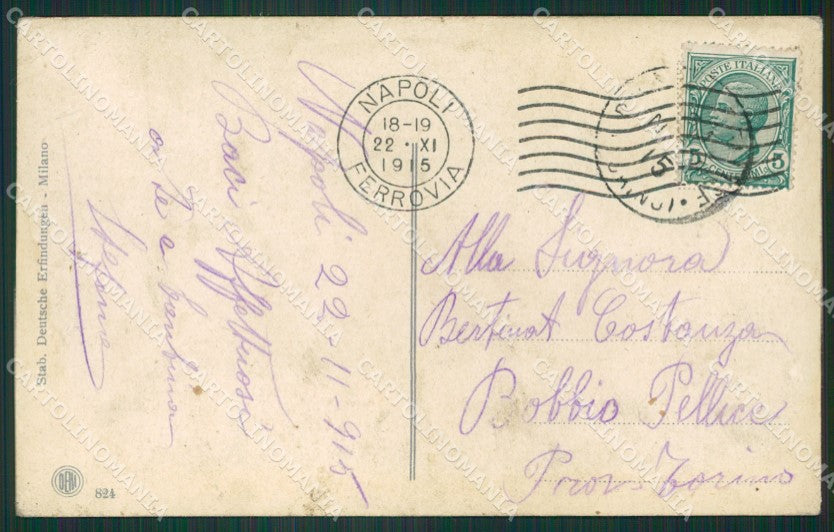 NAPOLI
18-19
22 · XI
1915
FERROVIA
POSTE ITALIANE
5
Napoli 22-11-915
Baci Affettuosi
a te e
Stefano
Alla Signora
Bertinat Costanza
Bobbio Pellice
Prov. Torino
Stab. Deutsche Erfindungen - Milano
DERI
824
CARTOLINOMANIA